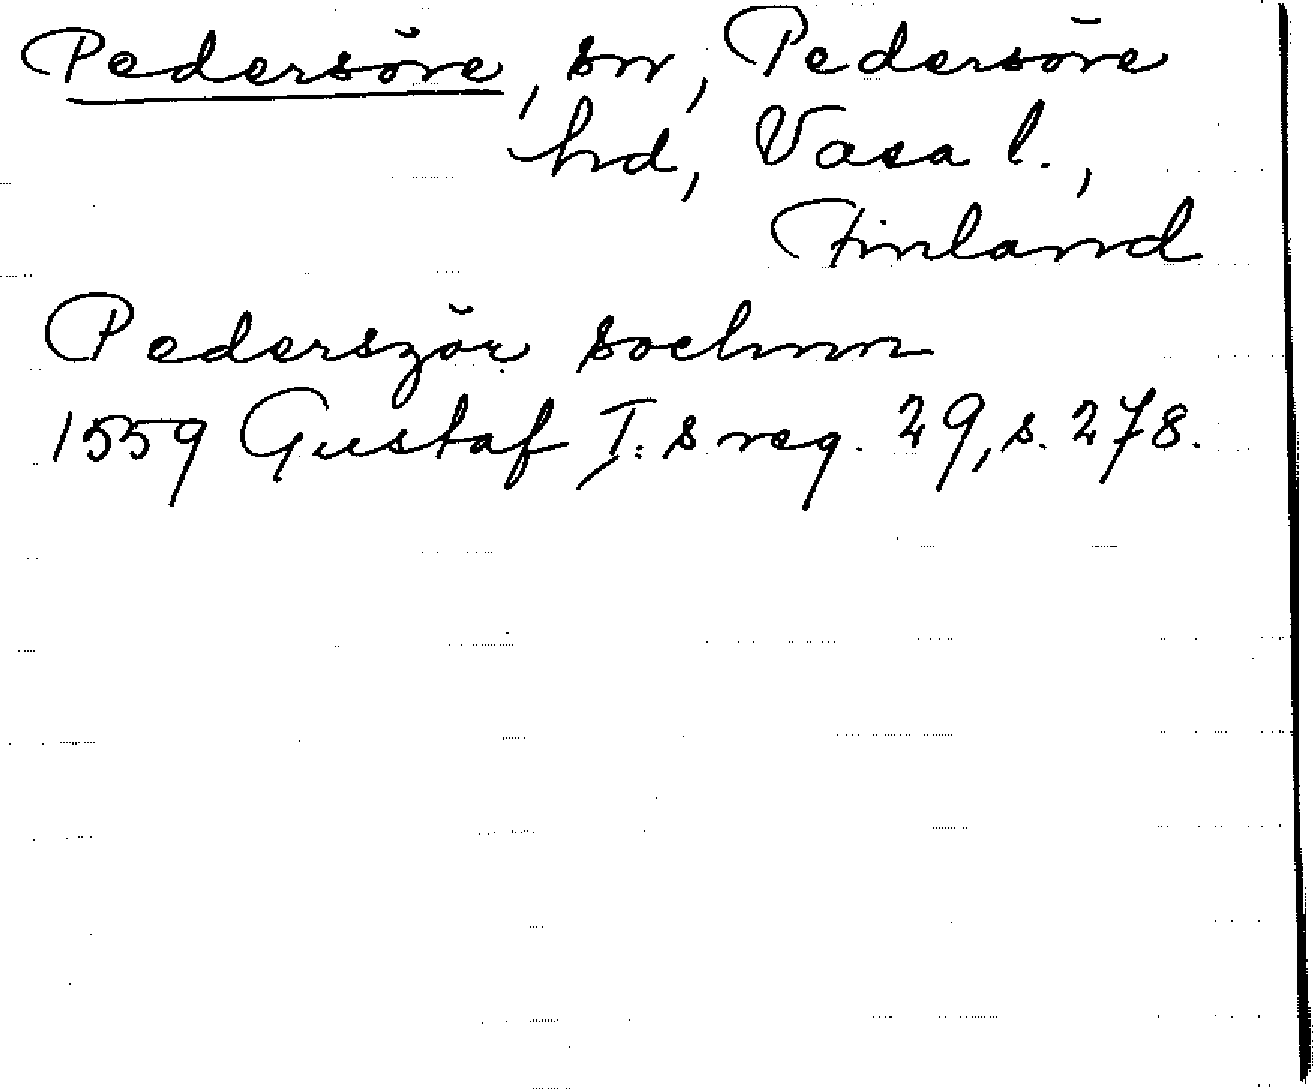 Pedersöre, sn, Pedersöre
hd, Vasa l.,
Finland
Pederszöre sochnn
1559 Gustaf I:s reg. 29, s. 278.